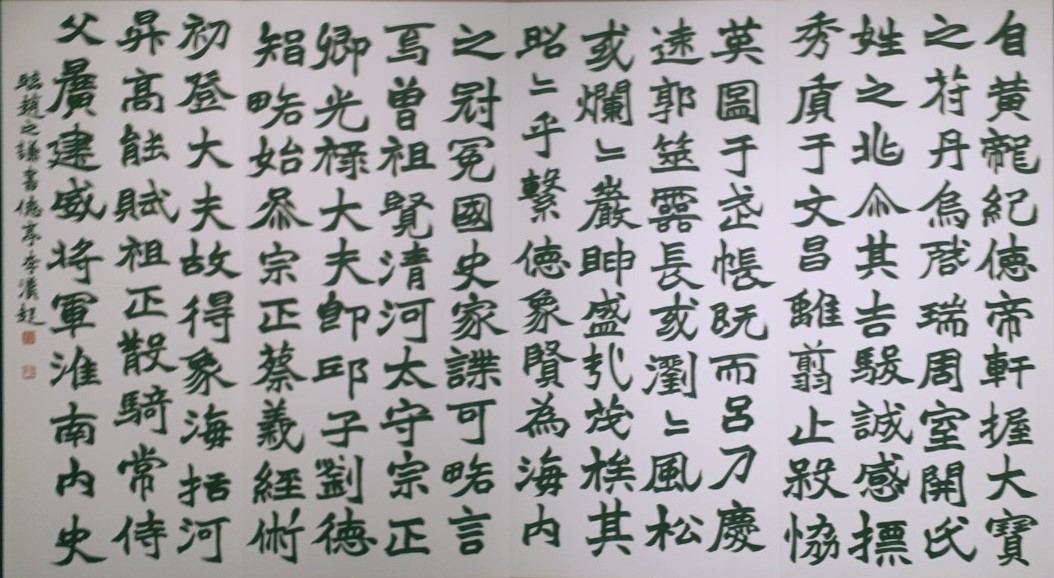 自黄龍紀徳帝軒握大寶
之符丹烏啓瑞周室開氏
姓之兆其吉駿誠感摽
秀貭于文昌雖翦止殺恊
英圖于帳既而呂刀慶
遠郭筮長或瀏〻風松
或爛〻嚴盛茂族其
昭〻乎繫徳象賢為海内
之冠冕國史家諜可略言
焉曾祖覽清河太守宗正
卿光禄大夫卽邱子劉徳
智略始叅宗正蔡義經術
初登大夫故得象海括河
昇高能賦祖正散騎常侍
父廣建威将軍淮南内史
臨趙之謙書徳亭李漢起